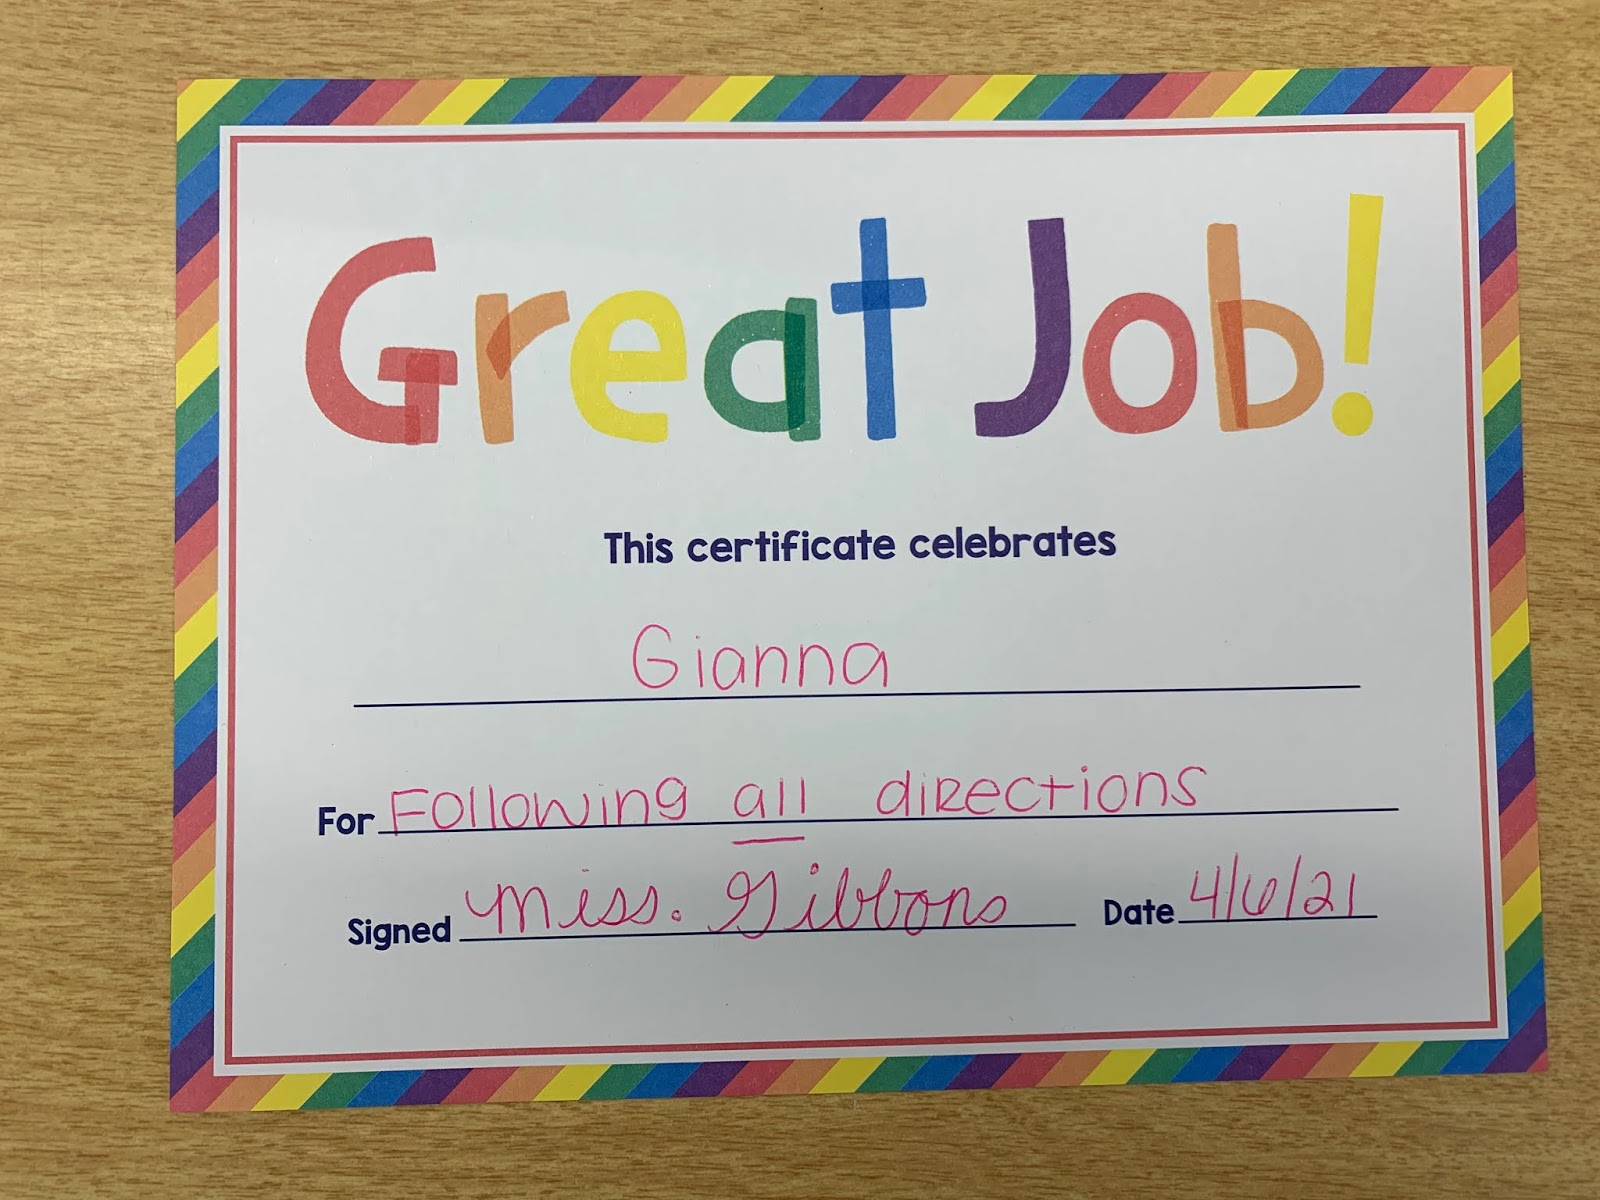 Great Job!
This certificate celebrates
Gianna
For Following all directions
Signed Miss. Gibbons Date 4/6/21